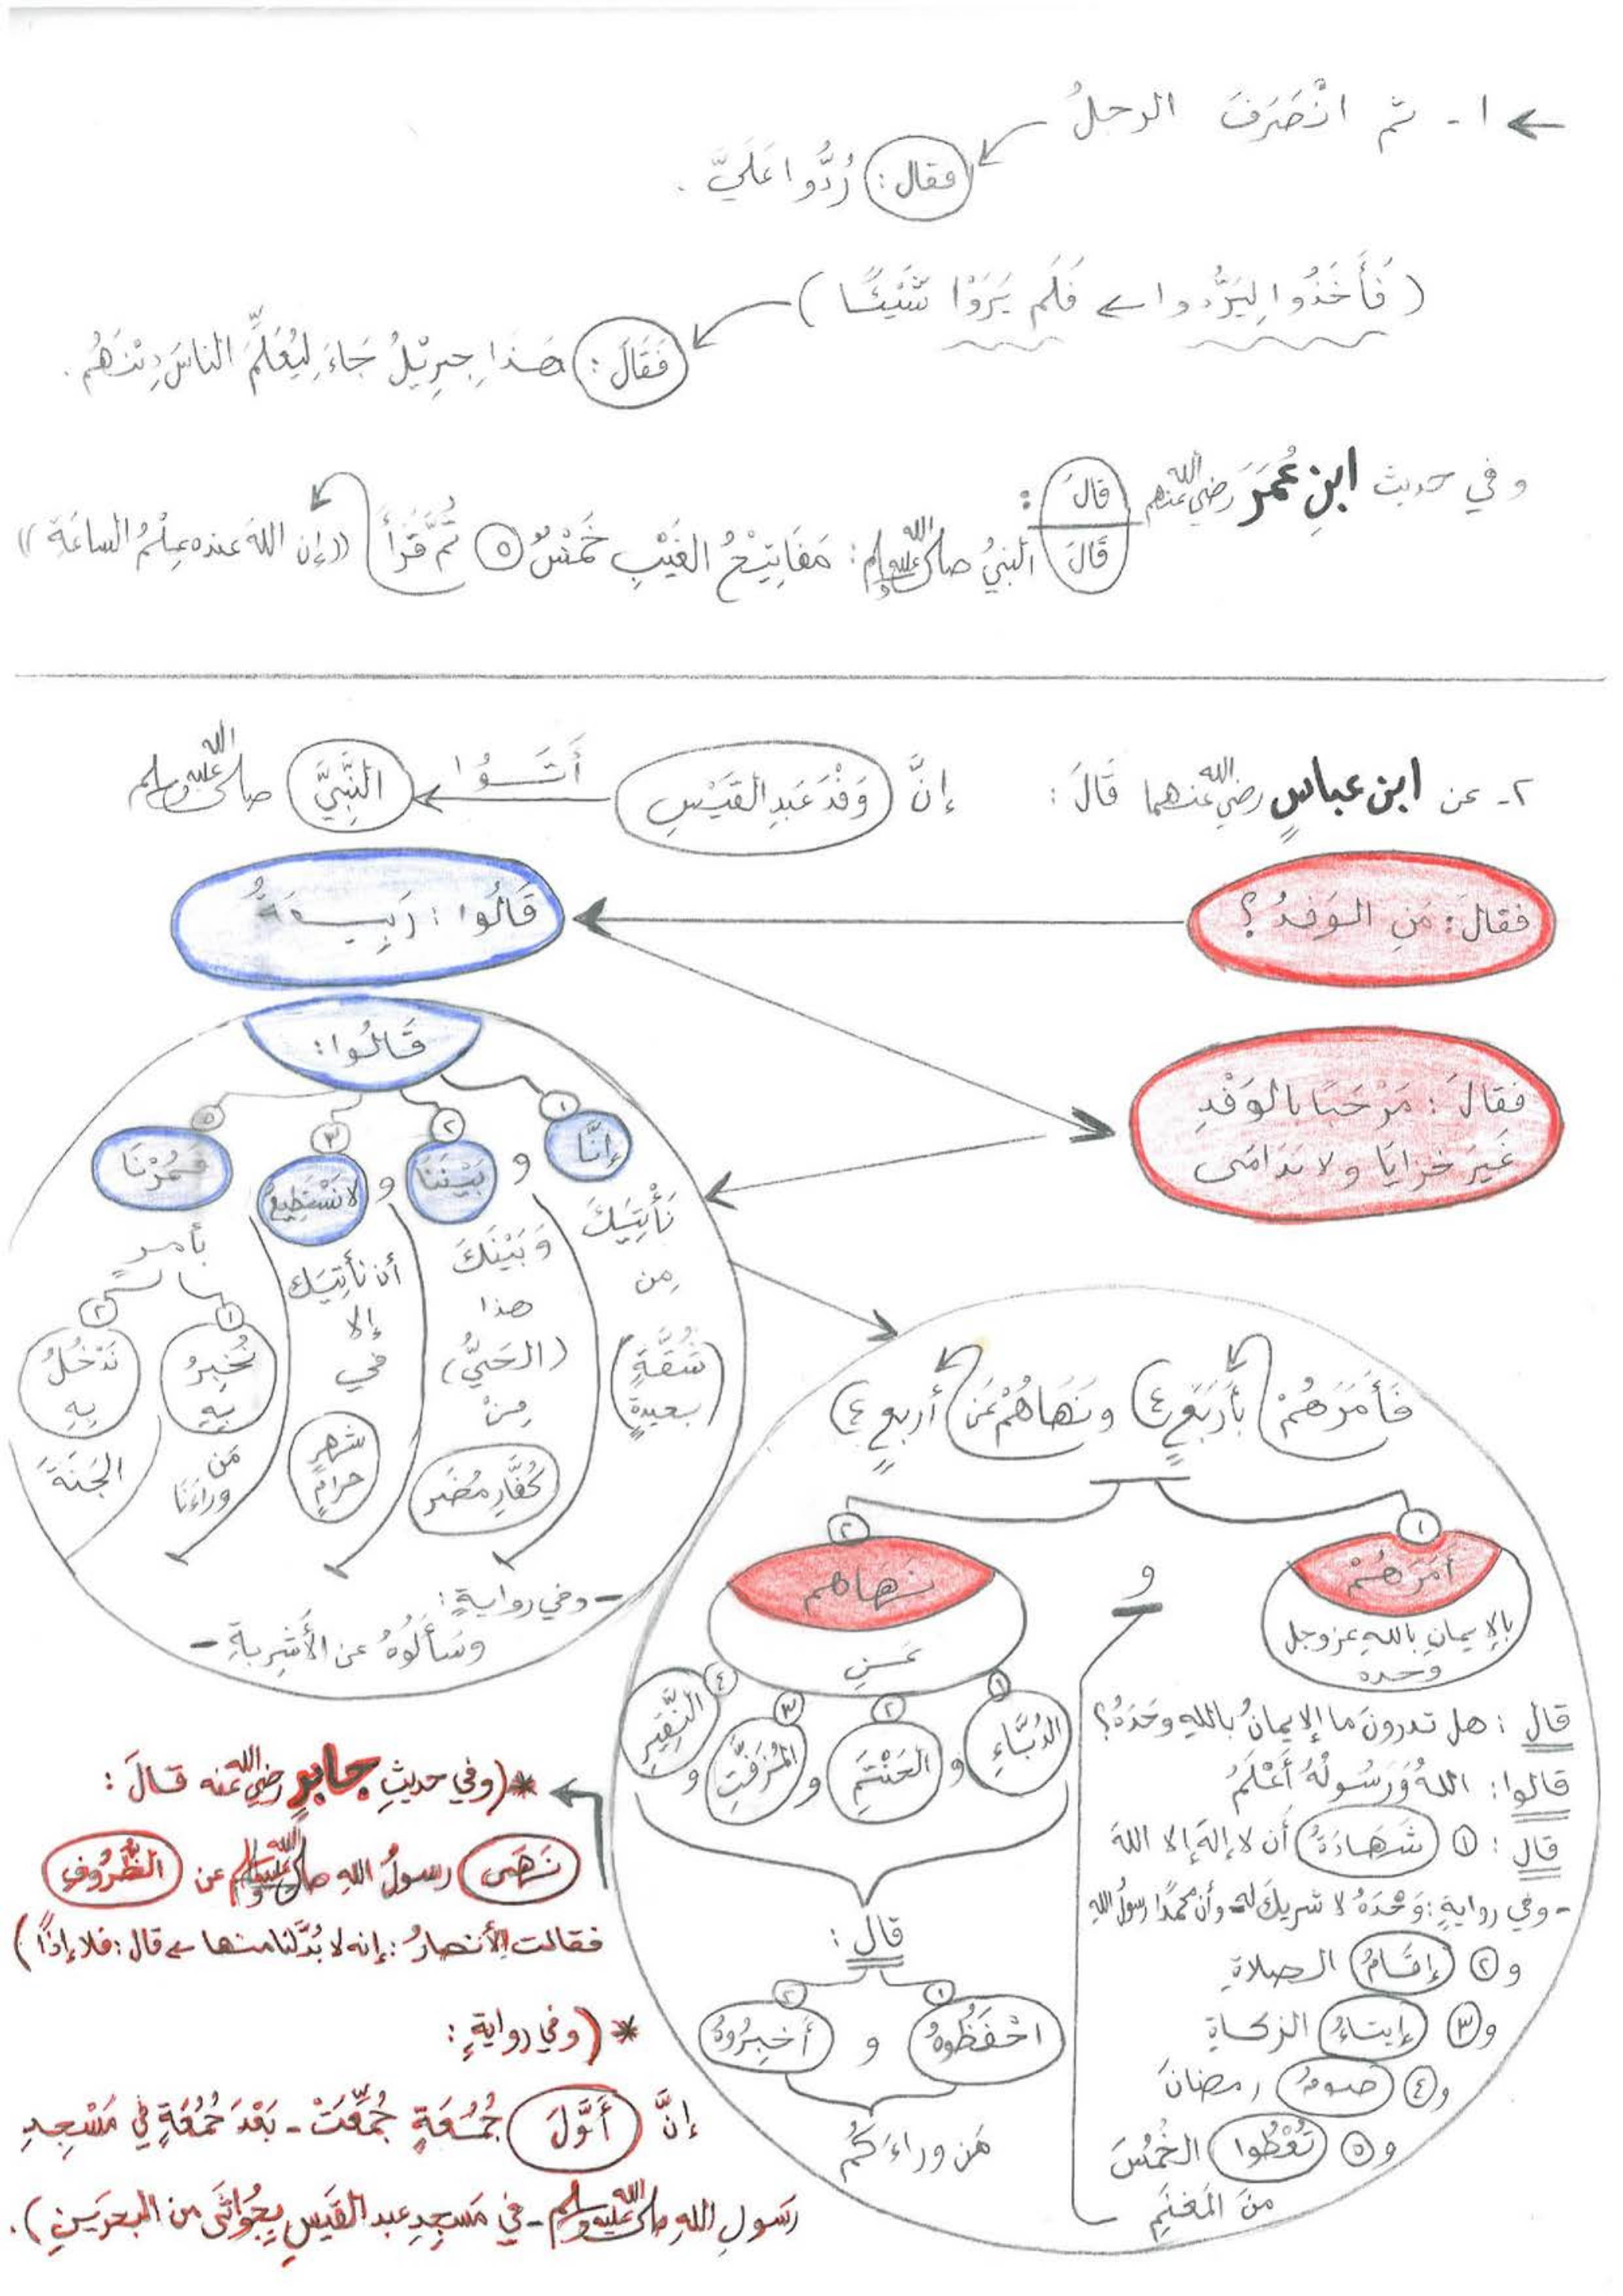 ١- ثم انْصَرَفَ الرجلُ
فقال: رُدُّوا عَلَيَّ.
(فَأَخَذُوا لِيَرُّدوا ← فَلَم يَرَوْا شَيْئًا)
فَقَالَ: هَذا جِبرِيْلُ جَاءَ لِيُعَلِّمَ الناسَ دِيْنَهُم.
وفي حديث ابنِ عُمَرَ رضي الله عنهم قالَ:
قَالَ النبيُّ صلى الله عليه وسلم: مَفَاتِيْحُ الغَيْبِ خَمْسٌ ٥ ثُمَّ قَرَأَ ((إن اللهَ عنده عِلْمُ الساعَةِ))
٢- عن ابن عباسٍ رضي الله عنهما قَالَ: إنَّ وَفْدَ عَبدِ القَيْسِ أَتَوُا النَّبِيَّ صلى الله عليه وسلم
فقالَ: مَنِ الوَفدُ؟
قَالُوا: رَبِيعَةُ
فقالَ: مَرْحَبًا بالوَفْدِ
غَيرَ خزايَا ولا نَدَامَى
قَالُوا:
١ إنَّا
نَأْتِيَكَ
مِن
(شُقَّةٍ
بعيدةٍ)
و
٢ بَيْننَا
وَبَيْنَكَ
هذا
(الحَيُّ)
مِنْ
كُفَّارِ مُضَر
و
٣ لا نَسْتَطِيعُ
أن نأتِيَك
إلا
في
شهرٍ
حرامٍ
٥ فمُرْنَا
بأمرٍ
١ نُخبِرُ
بِهِ
مَن
وراءَنَا
٢ نَدْخُلُ
بِهِ
الجَنَّةَ
- وفي روايةٍ:
وسَأَلُوهُ عن الأَشرِبةِ -
فَأَمَرَهُمْ بأَربَعٍ ٤ ونَهَاهُمْ عَن أربعٍ ٤
١ أمَرَهُمْ
بالإيمانِ باللهِ عز وجل
وحده
قال: هل تدرونَ ما الإيمانُ باللهِ وحَدَهُ؟
قالوا: اللهُ وَرَسُولُهُ أَعْلَمُ
قال: ١ شَهَادَةُ أن لا إلهَ إلا اللهُ
- وفي روايةٍ: وَحْدَهُ لا شريكَ له وأن محمدًا رسولُ اللهِ
و٢ إقَامُ الصلاةِ
و٣ إيتَاءُ الزكاةِ
و٤ صومُ رمضانَ
و٥ تُعْطُوا الخُمُسَ
منَ المَغنَمِ
و
٢ نهاهم
عَنِ
١ الدُبَّاءِ
و ٢ الحَنْتَمِ
و ٣ المُزَفَّتِ
و ٤ النَّقِيرِ
قال:
١ احْفَظُوهُ و ٢ أخبِرُوهُ
مَن وراءَكُم
* (وفي حديثِ جابرٍ رضي الله عنه قالَ:
نَهَى رسولُ اللهِ صلى الله عليه وسلم عن الظُّرُوفِ
فقالت الأنصارُ: إنه لا بُدَّ لنا منها ← قال: فلا إذًا)
* (وفي روايةٍ:
إنَّ أَوَّلَ جُمُعَةٍ جُمِّعَتْ - بَعْدَ جُمُعَةٍ في مَسْجِدِ
رَسولِ اللهِ صلى الله عليه وسلم - في مَسجِدِ عبد القَيسِ بِجُوَاثَى من البحرَينِ).